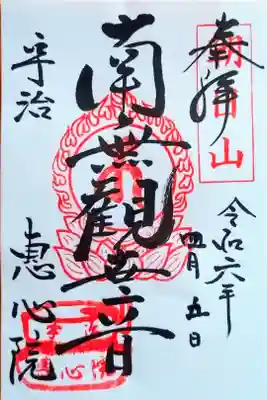 奉拝
朝日山
令和六年
四月五日
南無観世音
宇治
恵心院